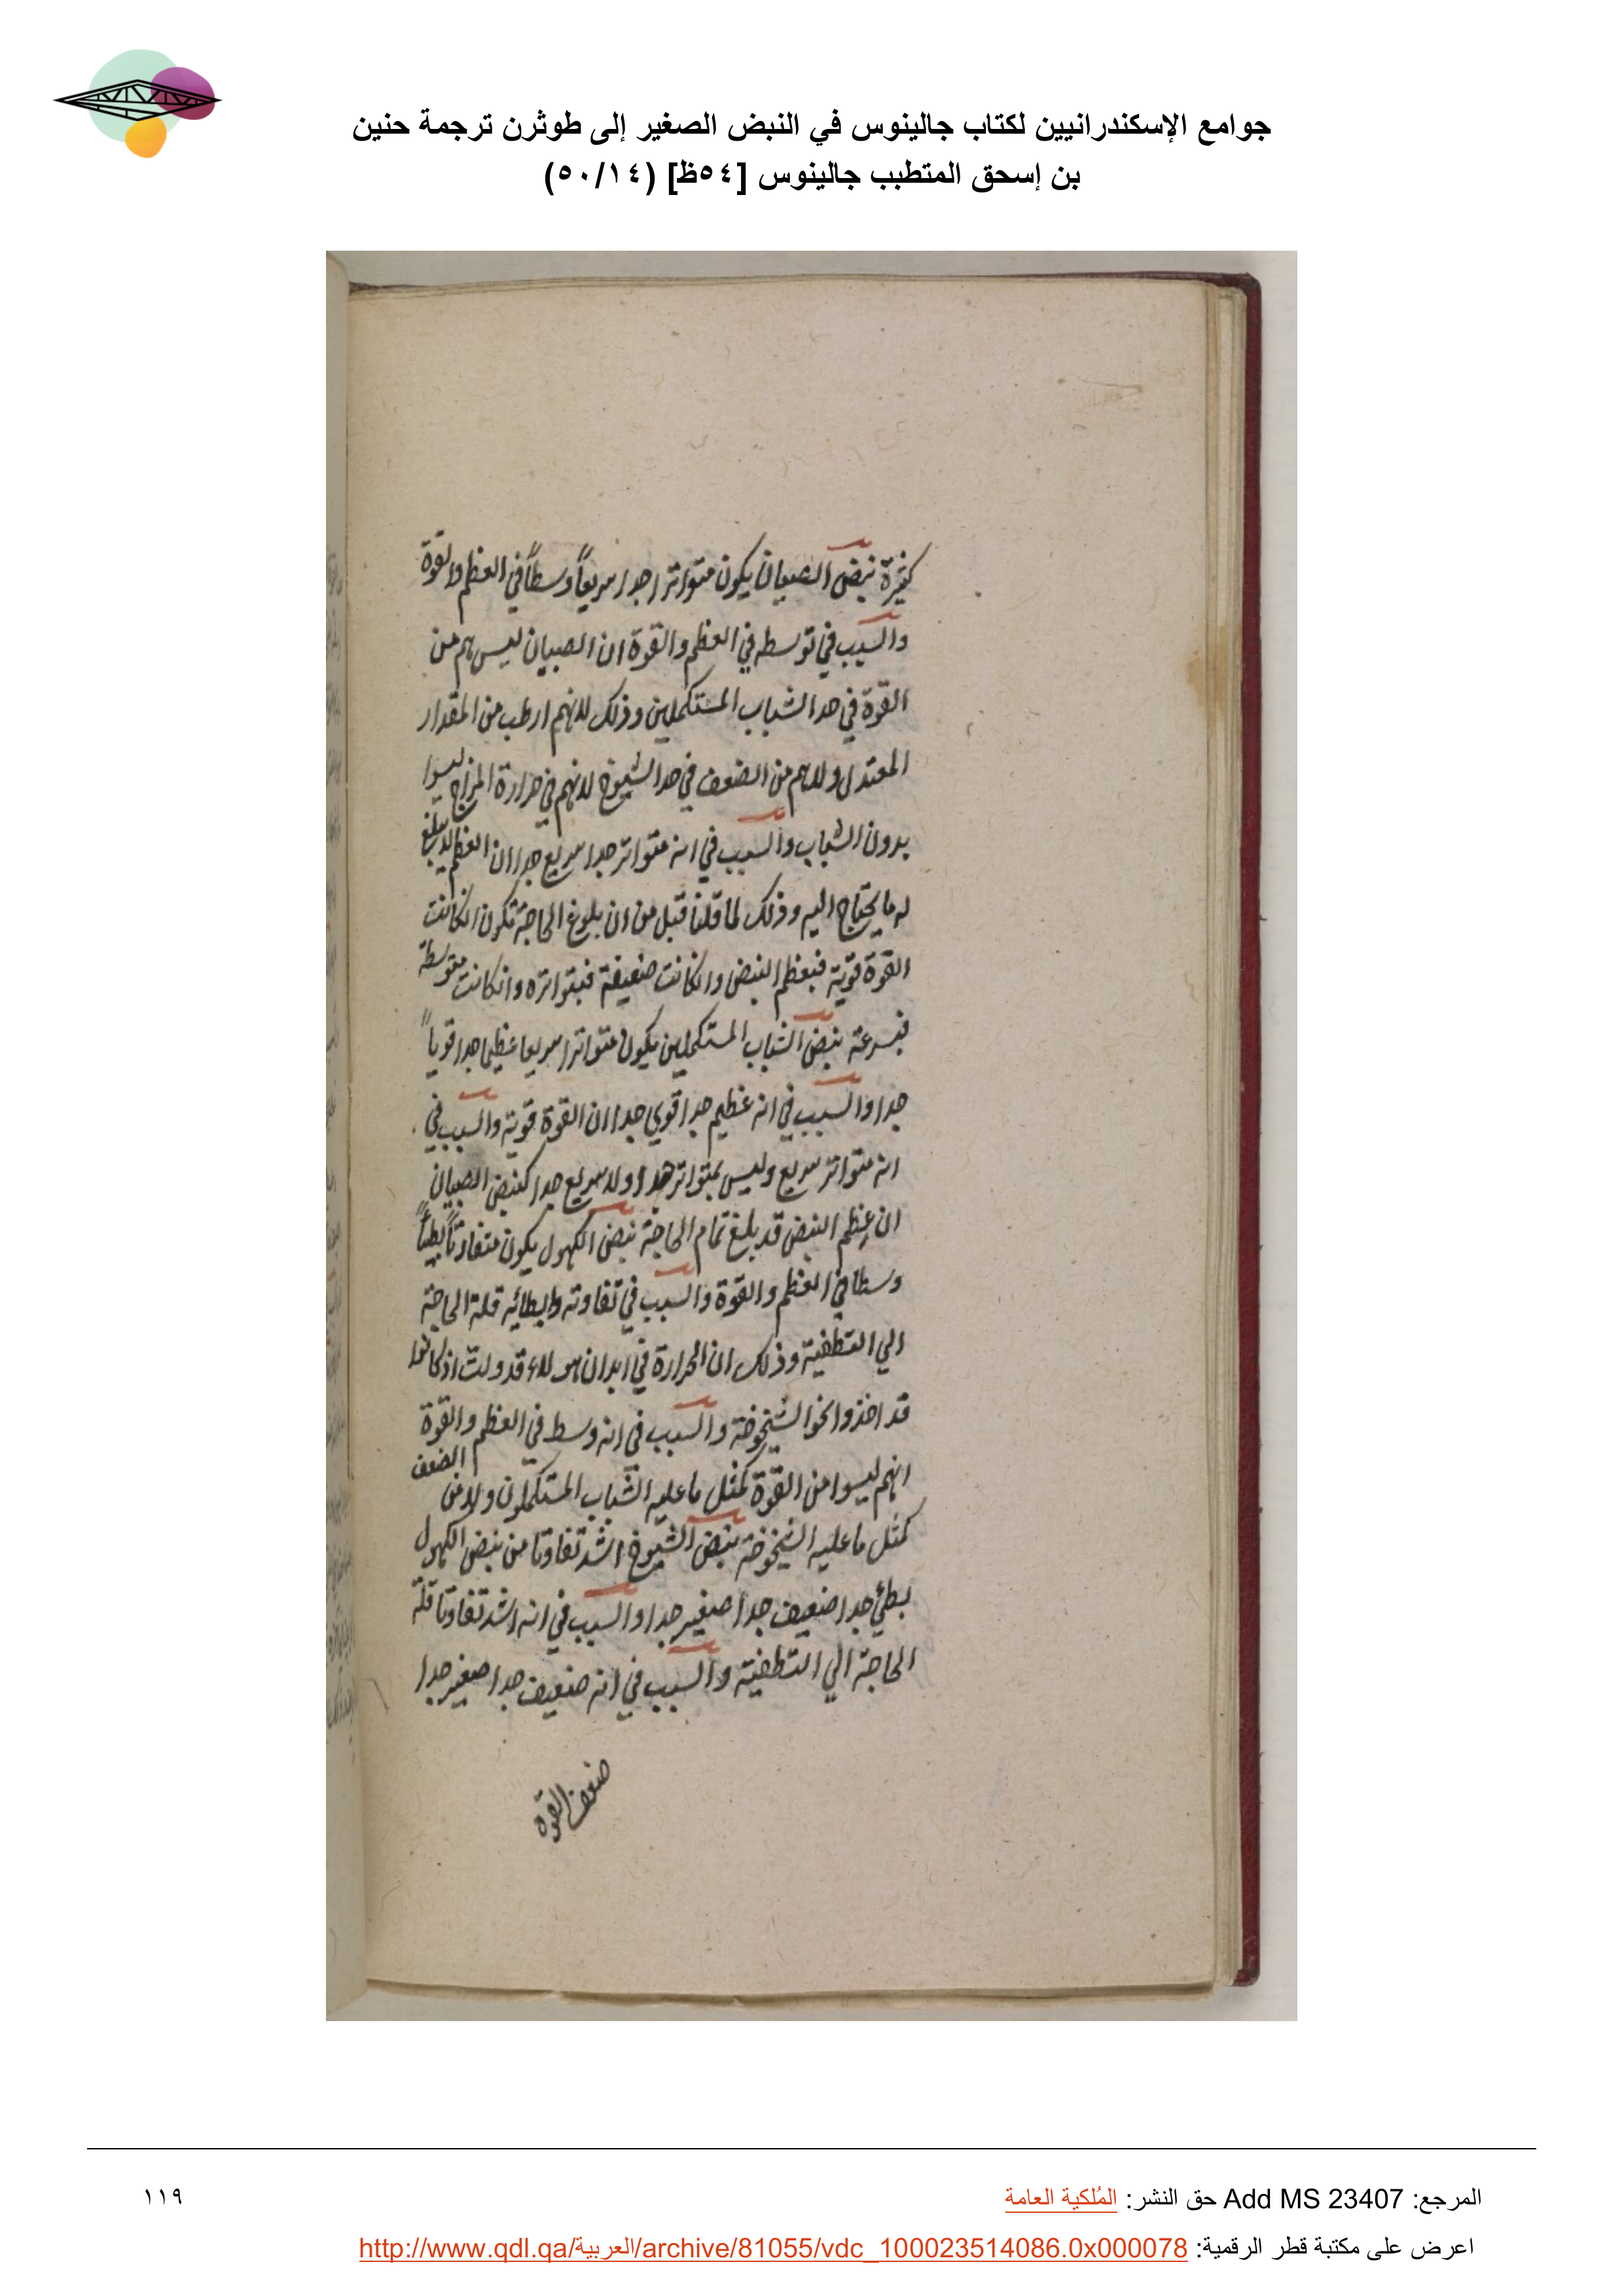 جوامع الإسكندرانيين لكتاب جالينوس في النبض الصغير إلى طوثرن ترجمة حنين
بن إسحق المتطبب جالينوس [٥٤ظ] (٥٠/١٤)
كثيرة نبض الصبيان يكون متواترا جدا سريعاً وسطاً في العظم والقوة
والسبب في توسطه في العظم والقوة ان الصبيان ليس هم من
القوة في حد الشباب المستكملين وذلك لانهم ارطب من المقدار
المعتدل ولا هم من الضعف في حد الشيوخ لانهم في حرارة المزاج ليسوا
بدون الشباب والسبب في انه متواتر جدا سريع جدا ان العظم لا يبلغ
له ما يحتاج اليه وذلك لما قلنا قبل من ان بلوغ الحاجة تكون انكانت
القوة قوية فبعظم النبض وانكانت ضعيفة فبتواتره وانكانت متوسطة
فبسرعة نبض الشباب المستكملين يكون متواترا سريعا عظيما جدا قوياً
جدا والسبب في انه عظيم جدا قوي جدا ان القوة قوية والسبب في
انه متواتر سريع وليس بمتواتر جدا ولا سريع جدا كنبض الصبيان
ان عظم النبض قد بلغ تمام الحاجة نبض الكهول يكون متفاوتاً بطيئاً
وسطا في العظم والقوة والسبب في تفاوته وابطائه قلة الحاجة
الي التطفية وذلك ان الحرارة في ابدان هولاء قد ولت اذ كانوا
قد اخذوا نحو الشيخوخة والسبب في انه وسط في العظم والقوة
انهم ليسوا من القوة كمثل ما عليه الشباب المستكملون ولا من الضعف
كمثل ما عليه الشيخوخة نبض الشيوخ اشد تفاوتا من نبض الكهول
بطئ جدا ضعيف جدا صغير جدا والسبب في انه اشد تفاوتا قلة
الحاجة الي التطفية والسبب في انه ضعيف جدا صغير جدا
ضعف القوة
المرجع: Add MS 23407 حق النشر: المُلكية العامة
١١٩
اعرض على مكتبة قطر الرقمية: http://www.qdl.qa/العربية/archive/81055/vdc_100023514086.0x000078